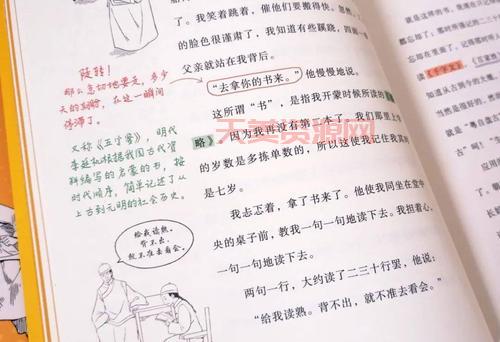 了。我笑着跳着,催他们要搬得快。忽然,
的脸色很谨肃了,我知道有些蹊跷,四面一看
父亲就站在我背后。
“去拿你的书来。”他慢慢地说。
这所谓“书”,是指我开蒙时候所读的《
略》
因为我再没有第二本了。我们那里上学
的岁数是多拣单数的,所以这使我记住我其时
是七岁。
我忐忑着,拿了书来了。他使我同坐在堂中
央的桌子前,教我一句一句地读下去。我担着心,
一句一句地读下去。
两句一行,大约读了二三十行罢,他说:
“给我读熟。背不出,就不准去看会。”
陡转!
那么急切地要走,多少
天的期盼,在这一瞬间
停滞了。
又称《五字鉴》,明代
李廷机根据我国古代资
料编写的启蒙的书,按
时代顺序,简单记述了从
上古到元明的社会历史。
给我读熟。
背不出,
就不准去看会。
天美资源网